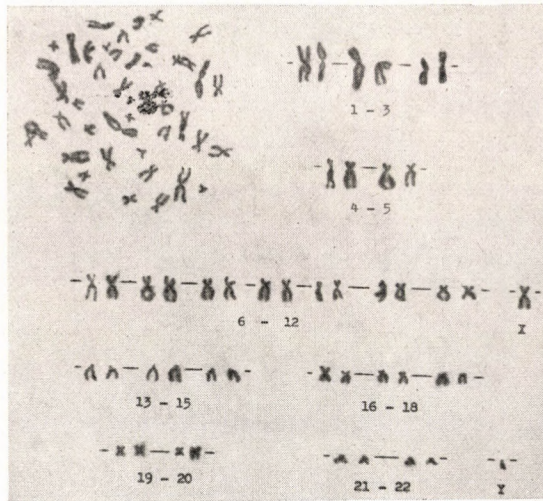 1 - 3
4 - 5
6 - 12
X
13 - 15
16 - 18
19 - 20
21 - 22
Y